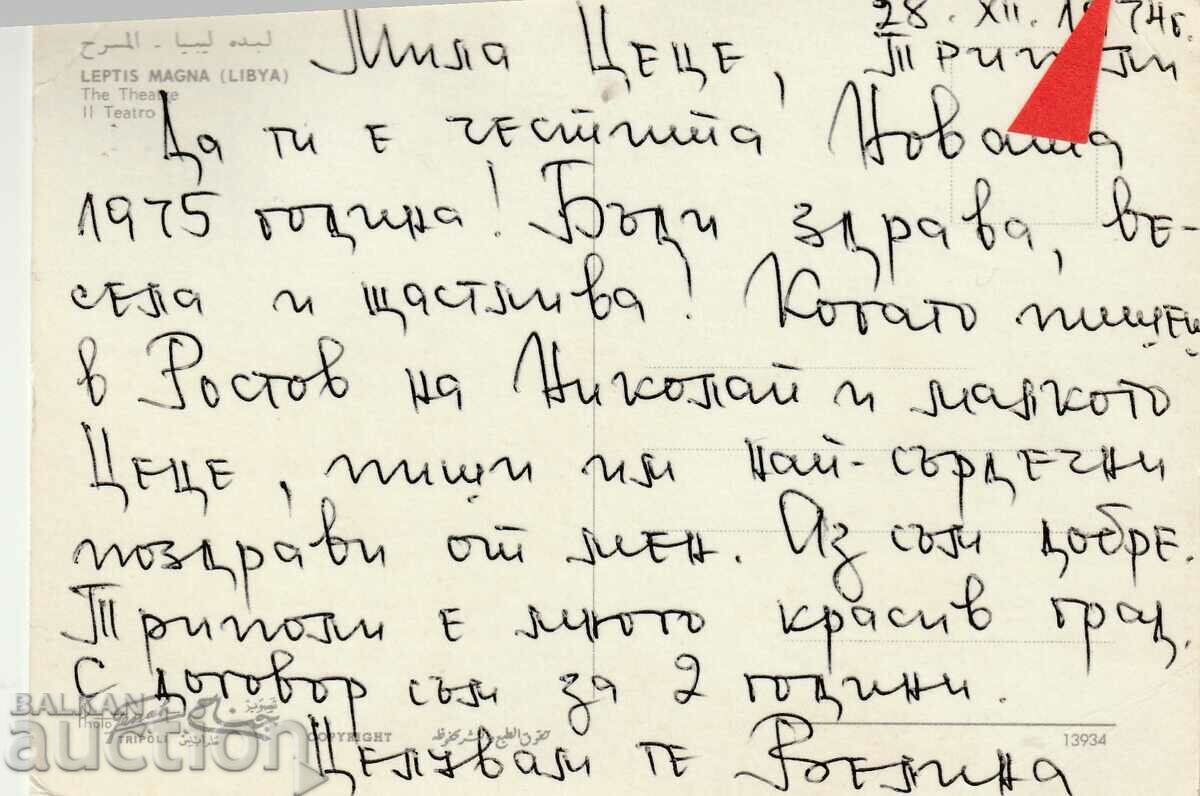 28. XII. 1974г.
لبده ليبيا - المسرح
LEPTIS MAGNA (LIBYA)
The Theatre
Il Teatro
Мила Цеце, Триполи
Да ти е честита Новата
1975 година! Бъди здрава, ве-
села и щастлива! Когато пишеш
в Ростов на Николай и малкото
Цеце, пиши им най-сърдечни
поздрави от мен. Аз съм добре.
Триполи е много красив град.
С договор съм за 2 години.
Целувам те Велина
Photo
TRIPOLI
COPYRIGHT
حقوق الطبع والنشر محفوظة
13934
BALKAN
auction